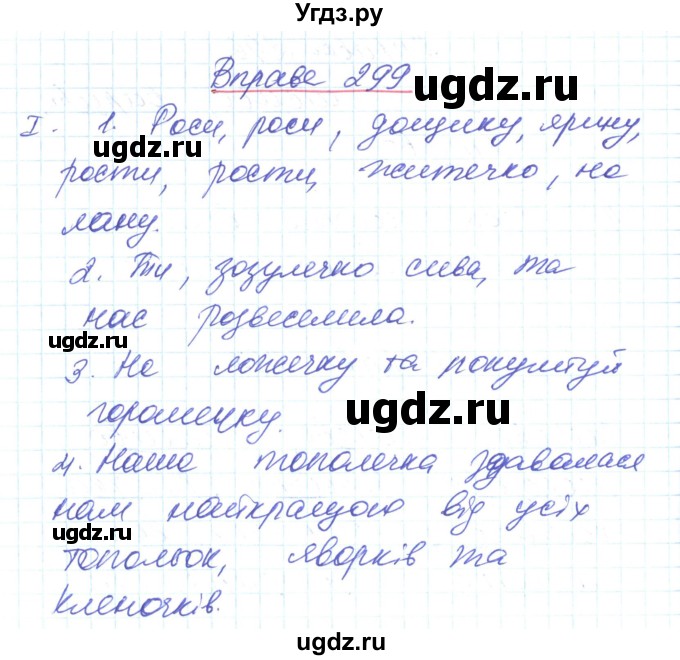 Угдз.ру
Вправа 299
ugdz.ru
I. 1. Роси, роси, дощику, ярину,
ugdz.ru
рости, рости, житечко, на
лану.
2. Ти, зозулечко сива, та
нас розвеселила.
ugdz.ru
3. На ложечку та покуштуй
горошецку.
ugdz.ru
4. Наша тополечка здавалася
нам найкращою від усіх
ugdz.ru
топольок, яворків та
кленочків.
ugdz.ru